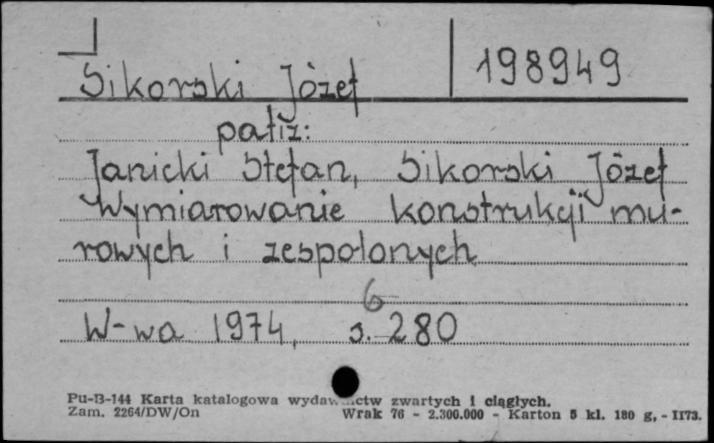 Sikorski Józef 198949
patrz:
Janicki Stefan, Sikorski Józef
Wymiarowanie konstrukcji mu-
rowych i zespolonych
6
W-wa 1974, s. 280
Pu-B-144 Karta katalogowa wydawnictw zwartych i ciągłych.
Zam. 2264/DW/On Wrak 76 - 2.300.000 - Karton 5 kl. 180 g, - II73.